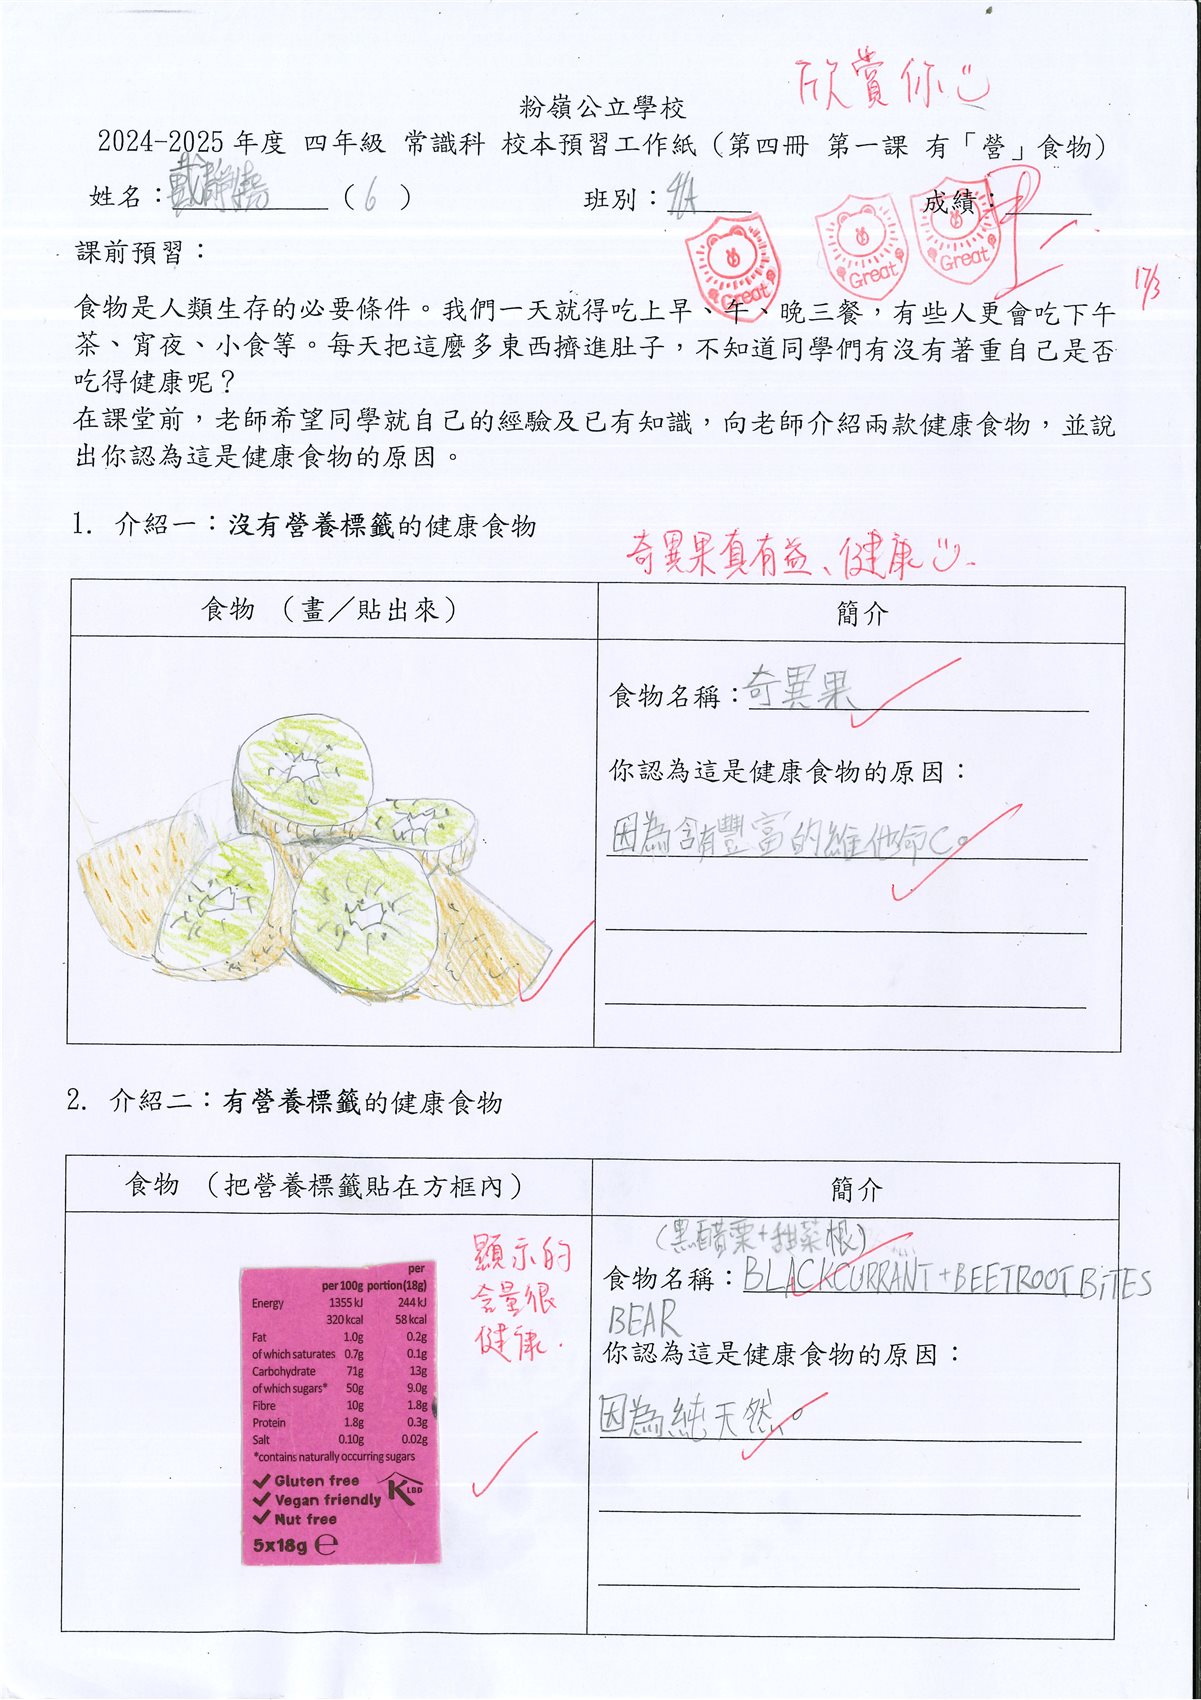 欣賞你
粉嶺公立學校
2024-2025 年度 四年級 常識科 校本預習工作紙（第四冊 第一課 有「營」食物）
姓名：戴 （ 6 ） 班別：4A 成績：
Great
Great
Great
17/3
課前預習：
食物是人類生存的必要條件。我們一天就得吃上早、午、晚三餐，有些人更會吃下午
茶、宵夜、小食等。每天把這麼多東西擠進肚子，不知道同學們有沒有著重自己是否
吃得健康呢？
在課堂前，老師希望同學就自己的經驗及已有知識，向老師介紹兩款健康食物，並說
出你認為這是健康食物的原因。
1. 介紹一：沒有營養標籤的健康食物
奇異果真有益、健康
食物 （畫／貼出來）
簡介
食物名稱：奇異果
你認為這是健康食物的原因：
因為含有豐富的維他命C。
2. 介紹二：有營養標籤的健康食物
食物 （把營養標籤貼在方框內）
簡介
per
per 100g portion(18g)
Energy 1355 kJ 244 kJ
320 kcal 58 kcal
Fat 1.0g 0.2g
of which saturates 0.7g 0.1g
Carbohydrate 71g 13g
of which sugars* 50g 9.0g
Fibre 10g 1.8g
Protein 1.8g 0.3g
Salt 0.10g 0.02g
*contains naturally occurring sugars
Gluten free
Vegan friendly
Nut free
K LBD
5x18g ℮
顯示的
含量很
健康.
（黑醋栗+甜菜根）
食物名稱：BLACKCURRANT+BEETROOT BiTES
BEAR
你認為這是健康食物的原因：
因為純天然。